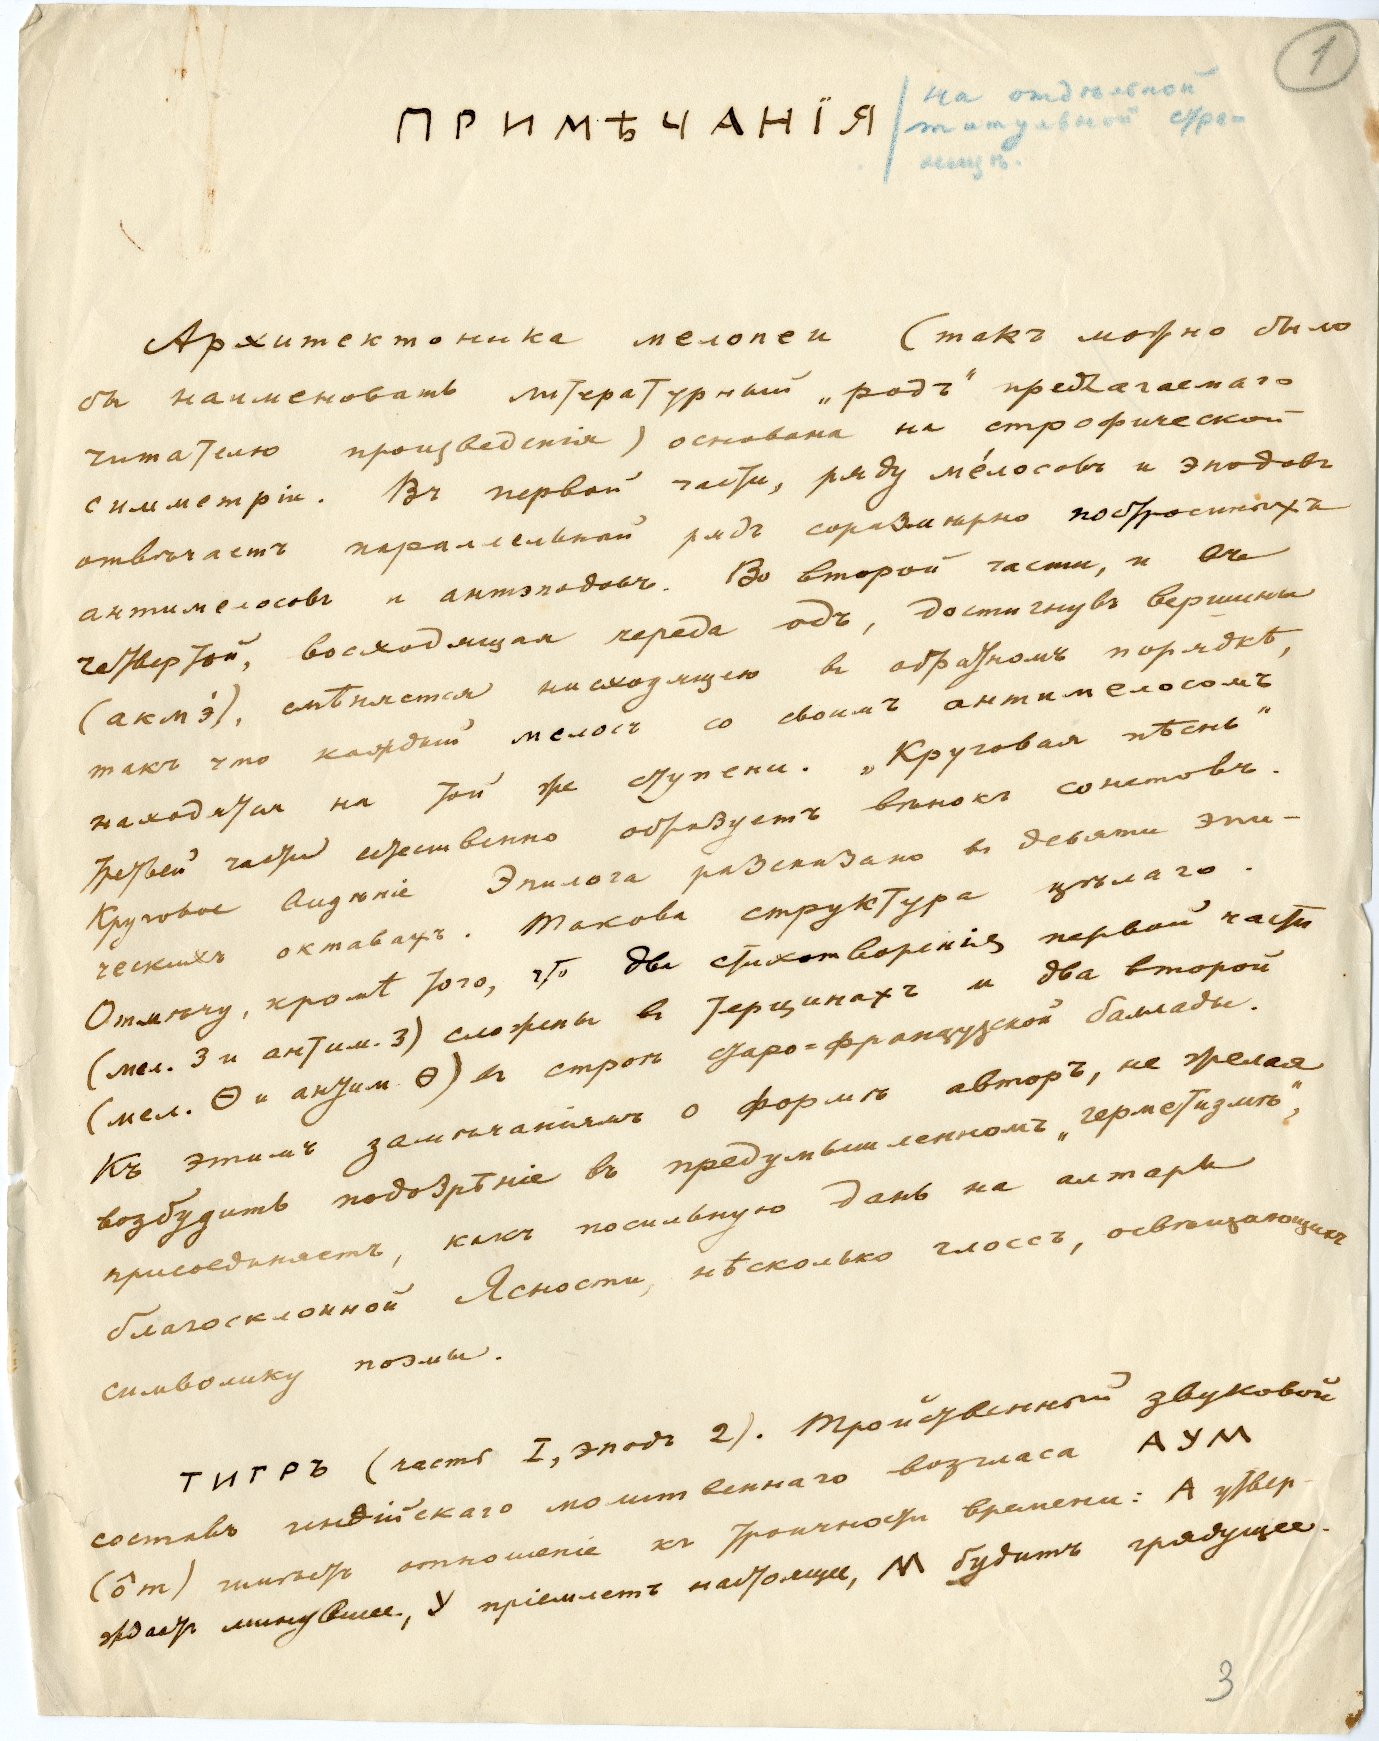 1
ПРИМѢЧАНІЯ
на отдѣльной
титульной стра=
ницѣ.
Архитектоника мелопеи (такъ можно было
бы наименовать литературный „родъ“ предлагаемаго
читателю произведенія) основана на строфической
симметріи. Въ первой части, ряду мéлосовъ и эподовъ
отвѣчаетъ параллельный рядъ соразмѣрно построенныхъ
антимелосовъ и антэподовъ. Во второй части, и въ
четвертой, восходящая череда одъ, достигнувъ вершины
(акмэ́), смѣняется нисходящею въ обратномъ порядкѣ,
такъ что каждый мелосъ со своимъ антимелосомъ
находятся на той же ступени. „Круговая пѣснь“
третьей части естественно образуетъ вѣнокъ сонетовъ.
Круговое видѣніе Эпилога разсказано въ девяти эпи-
ческихъ октавахъ. Такова структура цѣлаго.
Отмѣчу, кромѣ того, что два стихотворенія первой части
(мел. 3 и антим. 3) сложены въ терцинахъ и два второй
(мел. Θ и антим. Θ) въ строѣ старо=французской баллады.
Къ этимъ замѣчаніямъ о формѣ авторъ, не желая
возбудить подозрѣніе въ предумышленномъ „герметизмѣ“,
присоединяетъ, какъ посильную дань на алтарь
благосклонной Ясности, нѣсколько глоссъ, освѣщающихъ
символику поэмы.
ТИГРЪ (часть I, эподъ 2). Тройственный звуковой
составъ индійскаго молитвеннаго возгласа АУМ
(ôm) имѣетъ отношеніе къ троичности времени: А утвер-
ждаетъ минувшее, У пріемлетъ настоящее, М будитъ грядущее.
3